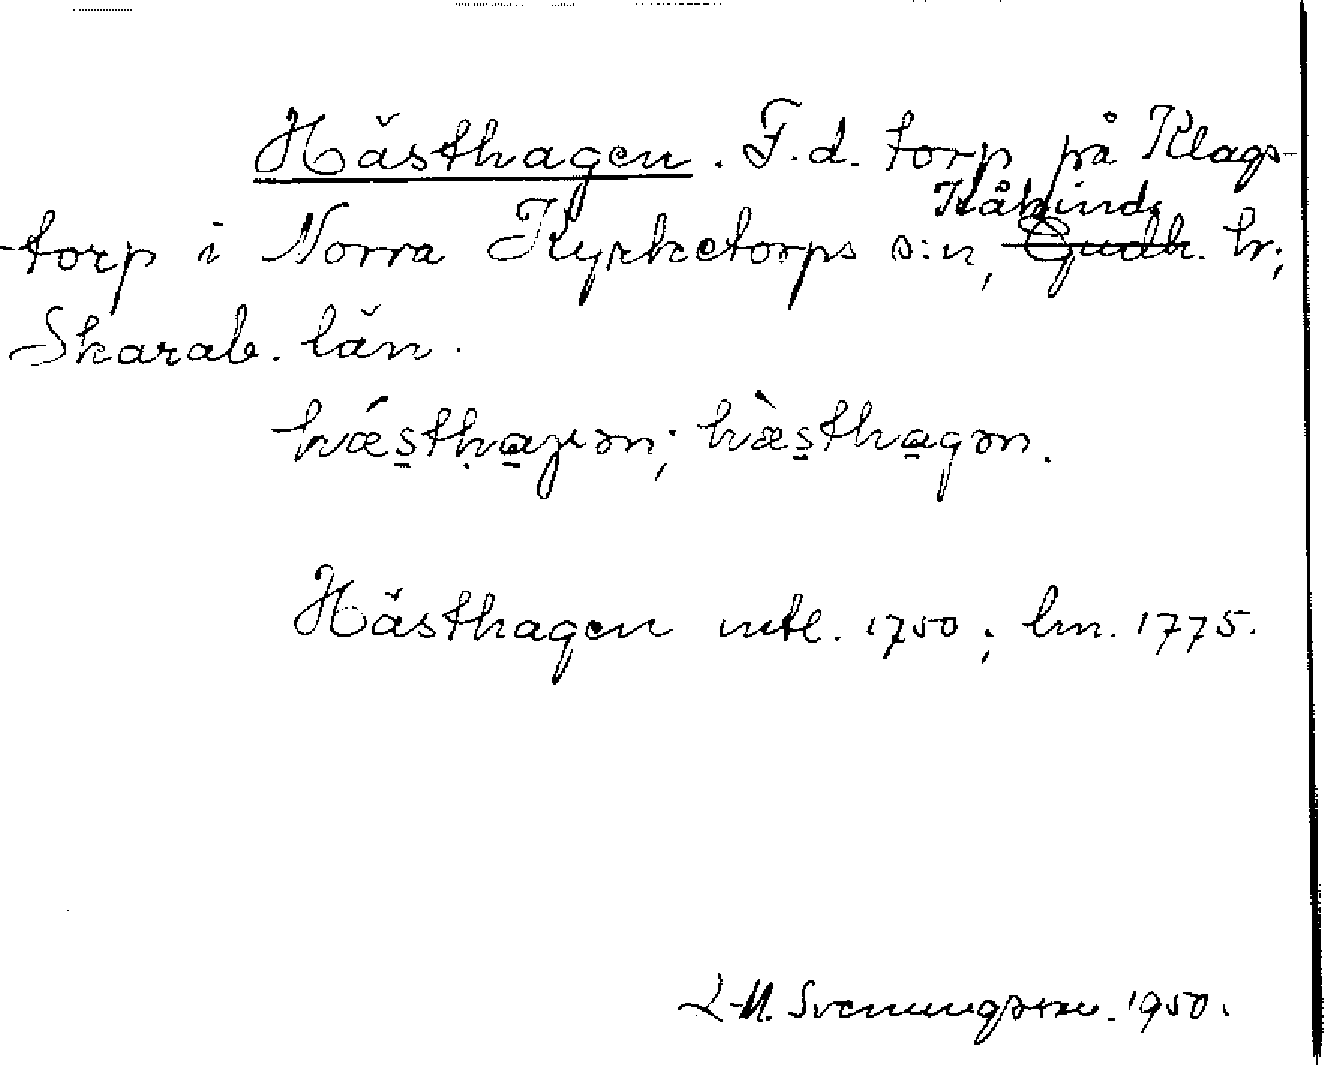 Hästhagen. F.d. torp på Klags-
torp i Norra Kyrketorps s:n, Kåkinds Gudh. hr;
Skarab. län.
hǽsthaɣən; hæ̀sthagən.
Hästhagen mtl. 1750; lm. 1775.
L-M. Svenungsson. 1950.